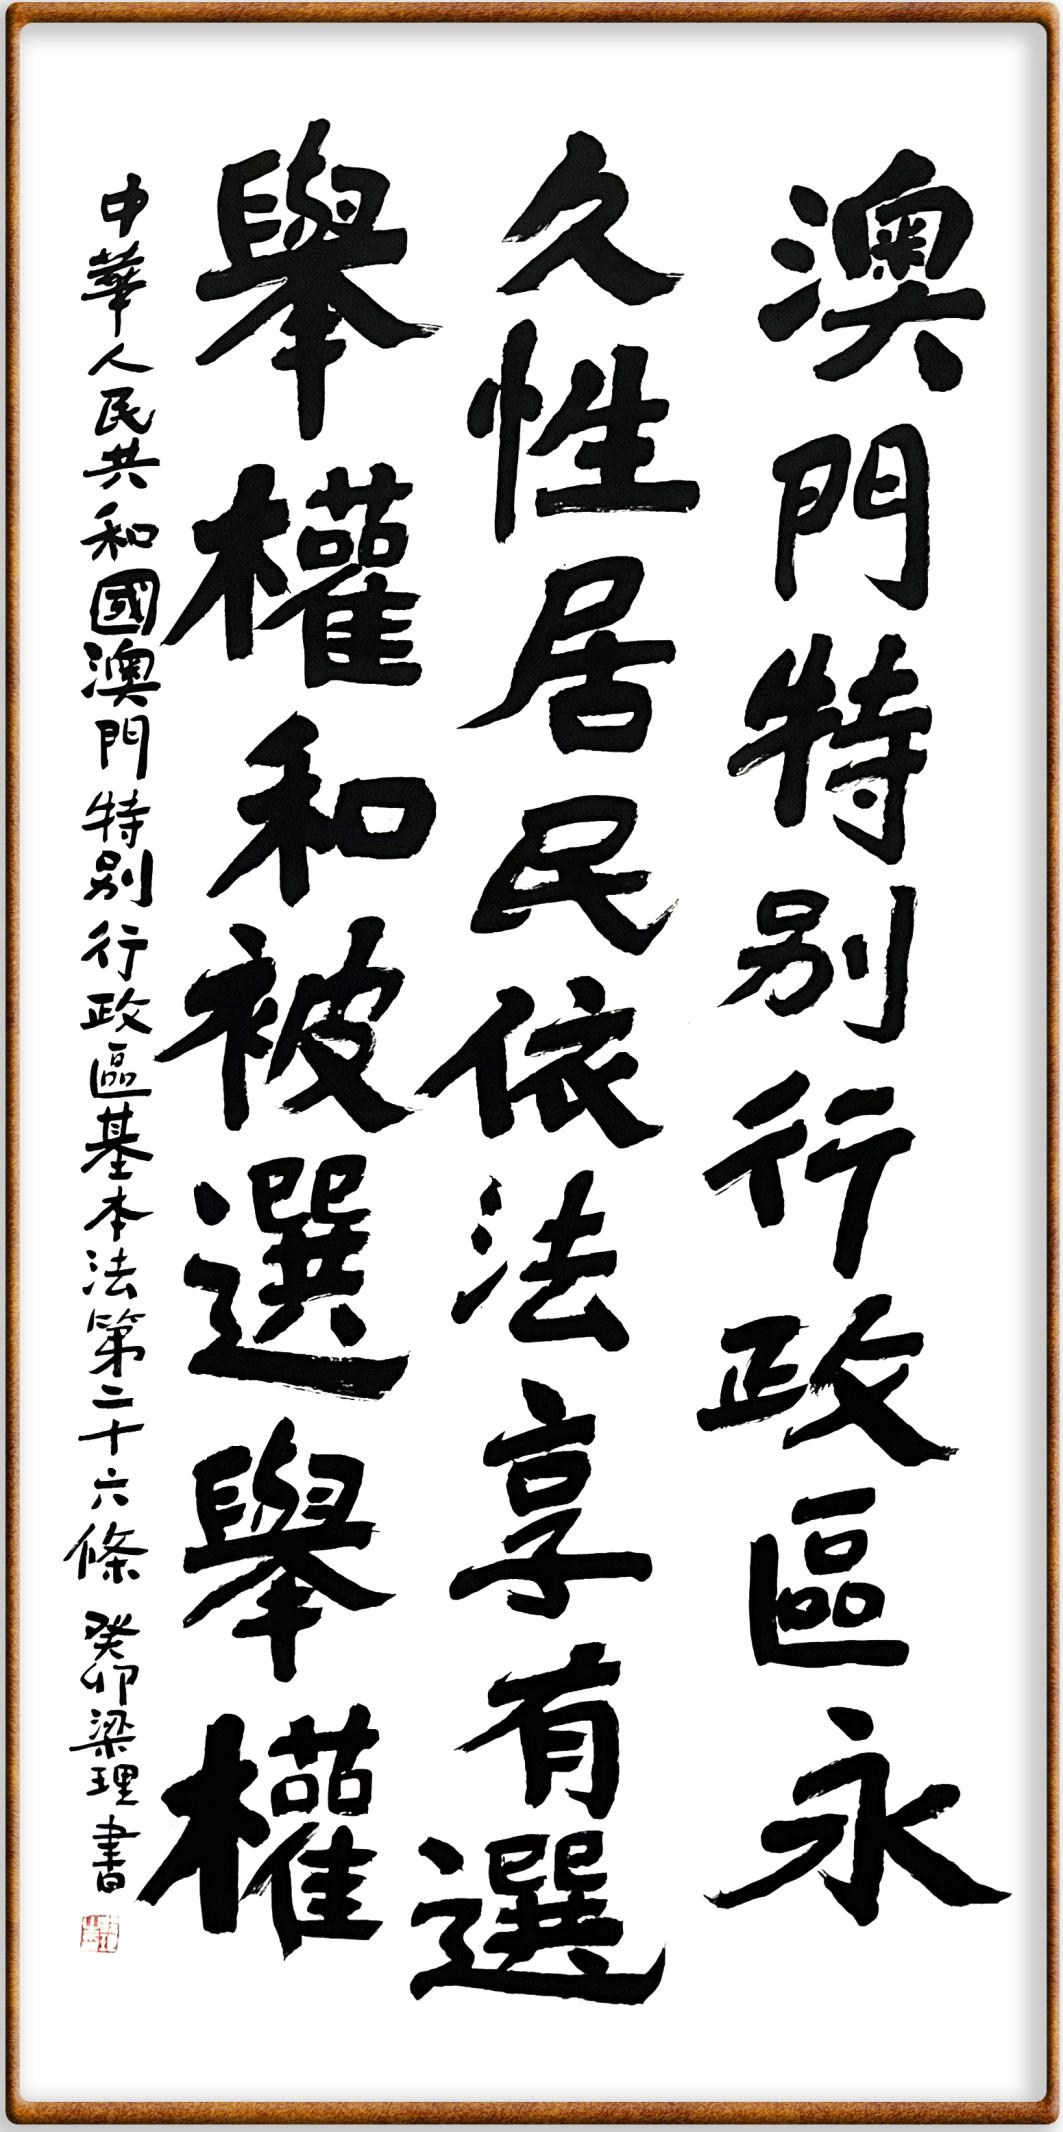 澳門特別行政區永
久性居民依法享有選
舉權和被選舉權
中華人民共和國澳門特別行政區基本法第二十六條 癸卯梁理書